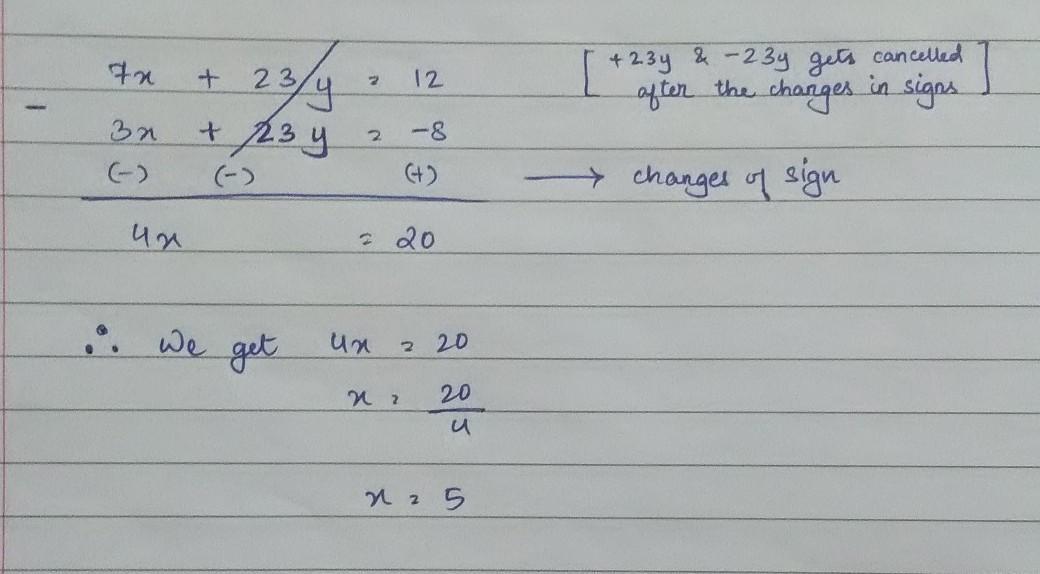 7x + 23y = 12 [ +23y & -23y gets cancelled
after the changes in signs ]
-
3x + 23y = -8
(-) (-) (+) → changes of sign
4x = 20
∴ We get 4x = 20
x = 20
4
x = 5